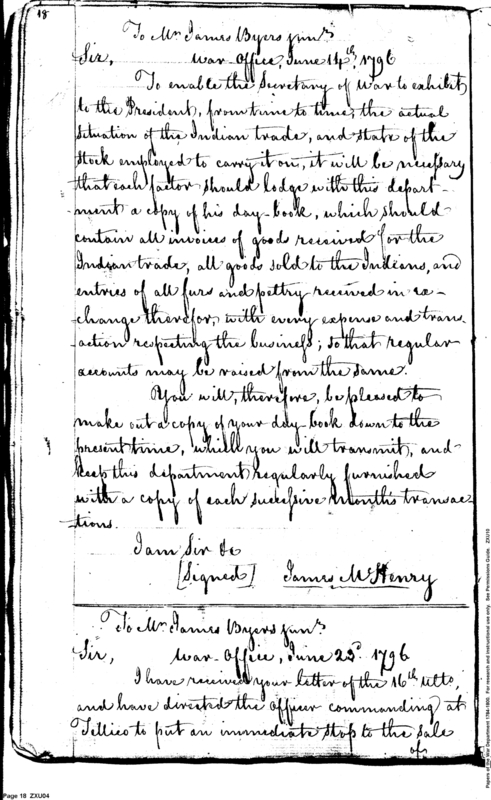 18
To Mr. James Byers junr.
Sir, War-Office, June 14th, 1796
To enable the Secretary of War to exhibit
to the President, from time to time, the actual
situation of the Indian trade, and state of the
stock employed to carry it on, it will be necessary
that each factor should lodge with this depart-
ment a copy of his day-book, which should
contain all invoices of goods received for the
Indian trade, all goods sold to the Indians, and
entries of all furs and peltry received in ex-
change therefor, with every expense and trans-
action respecting the business; so that regular
accounts may be raised from the same.
You will, therefore, be pleased to
make out a copy of your day-book down to the
present time, which you will transmit, and
keep this department regularly furnished
with a copy of each successive month's transac-
tions.
I am Sir &c
[Signed] James McHenry
To Mr. James Byers junr.
Sir, War-Office, June 23d. 1796
I have received your letter of the 16th Ulto,
and have directed the Officer commanding at
Tellico to put an immediate stop to the sale
of
Page 18 ZXU04
Papers of the War Department 1784-1800. For research and instructional use only. See Permissions Guide. ZXU10